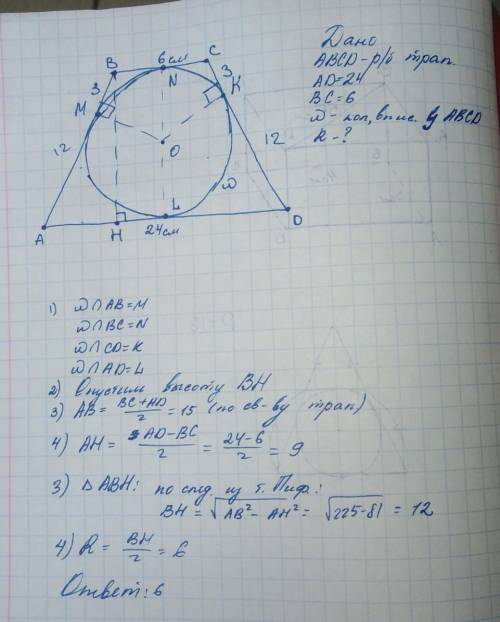 B 6см C
N
3 3
M K
O
12 12
ω
L
A H 24см D
Дано
ABCD - р/б трап.
AD=24
BC=6
ω - впис. в ABCD
R - ?
1) ω∩AB=M
ω∩BC=N
ω∩CD=K
ω∩AD=L
2) Опустим высоту BH
3) AB = BC+AD/2 = 15 (по св-ву трап)
4) AH = AD-BC/2 = 24-6/2 = 9
3) △ABH: по след. из т. Пиф.:
BH = √AB²-AH² = √225-81 = 12
4) R = BH/2 = 6
Ответ: 6